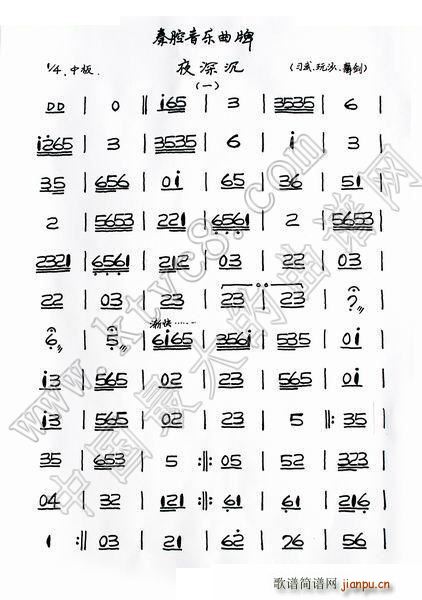 秦腔音乐曲牌
1/4. 中板. 夜深沉 (习武、玩沙、舞剑)
(一)
DD | 0 ‖ i65 | 3 | 3535 | 6
i265 | 3 | 3535 | 6 | i | 3
35 | 656 | 0i | 65 | 36 | 51
2 | 5653 | 221 | 6561 | 2 | 5653
2321 | 6561 | 212 | 03 | 22 | 03
22 | 03 | 23 | 23 | 23 | ?
渐快......
6 | 5 | 6i65 | 356i | 535 | 0i
i3 | 565 | 02 | 23 | 565 | 0i
i3 | 565 | 02 | 23 | 5 ‖: 35
35 | 653 | 5 :‖: 05 | 52 | 323
04 | 32 | 121 :‖: 61 | 61 | 216
1 :‖ 03 | 21 | 62 | 26 | 56
www.ktvc8.com
中国最大的曲谱网
歌谱简谱网
jianpu.cn